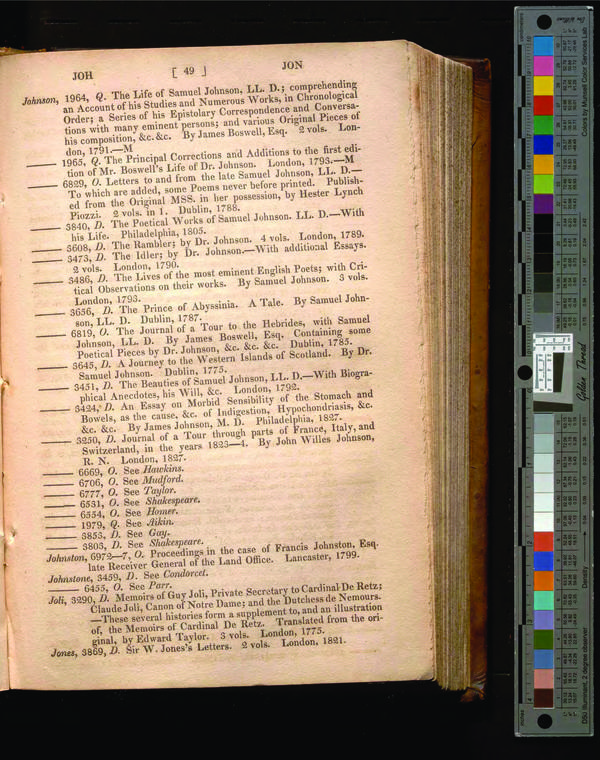 JOH [ 49 ] JON
Johnson, 1964, Q. The Life of Samuel Johnson, LL. D.; comprehending
an Account of his Studies and Numerous Works, in Chronological
Order; a Series of his Epistolary Correspondence and Conversa-
tions with many eminent persons; and various Original Pieces of
his composition, &c. &c. By James Boswell, Esq. 2 vols. Lon-
don, 1791.—M
—— 1965, Q. The Principal Corrections and Additions to the first edi-
tion of Mr. Boswell's Life of Dr. Johnson. London, 1793.—M
—— 6829, O. Letters to and from the late Samuel Johnson, LL. D.—
To which are added, some Poems never before printed. Publish-
ed from the Original MSS. in her possession, by Hester Lynch
Piozzi. 2 vols. in 1. Dublin, 1788.
—— 3840, D. The Poetical Works of Samuel Johnson. LL. D.—With
his Life. Philadelphia, 1805.
—— 3608, D. The Rambler; by Dr. Johnson. 4 vols. London, 1789.
—— 3473, D. The Idler; by Dr. Johnson.—With additional Essays.
2 vols. London, 1790.
—— 3486, D. The Lives of the most eminent English Poets; with Cri-
tical Observations on their works. By Samuel Johnson. 3 vols.
London, 1793.
—— 3656, D. The Prince of Abyssinia. A Tale. By Samuel John-
son, LL. D. Dublin, 1787.
—— 6819, O. The Journal of a Tour to the Hebrides, with Samuel
Johnson, LL. D. By James Boswell, Esq. Containing some
Poetical Pieces by Dr. Johnson, &c. &c. &c. Dublin, 1785.
—— 3645, D. A Journey to the Western Islands of Scotland. By Dr.
Samuel Johnson. Dublin, 1775.
—— 3451, D. The Beauties of Samuel Johnson, LL. D.—With Biogra-
phical Anecdotes, his Will, &c. London, 1792.
—— 3424, D. An Essay on Morbid Sensibility of the Stomach and
Bowels, as the cause, &c. of Indigestion, Hypochondriasis, &c.
&c. &c. By James Johnson, M. D. Philadelphia, 1827.
—— 3250, D. Journal of a Tour through parts of France, Italy, and
Switzerland, in the years 1823—4. By John Willes Johnson,
R. N. London, 1827.
—— 6669, O. See Hawkins.
—— 6706, O. See Mudford.
—— 6777, O. See Taylor.
—— 6531, O. See Shakespeare.
—— 6554, O. See Homer.
—— 1979, Q. See Aikin.
—— 3853, D. See Gay.
—— 3803, D. See Shakespeare.
Johnston, 6972—7, O. Proceedings in the case of Francis Johnston, Esq.
late Receiver General of the Land Office. Lancaster, 1799.
Johnstone, 3459, D. See Condorcet.
—— 6455, O. See Parr.
Joli, 3290, D. Memoirs of Guy Joli, Private Secretary to Cardinal De Retz;
Claude Joli, Canon of Notre Dame; and the Dutchess de Nemours.
—These several histories form a supplement to, and an illustration
of, the Memoirs of Cardinal De Retz. Translated from the ori-
ginal, by Edward Taylor. 3 vols. London, 1775.
Jones, 3869, D. Sir W. Jones's Letters. 2 vols. London, 1821.
Colors by Munsell Color Services Lab
Golden Thread
Density
D50 Illuminant, 2 degree observer